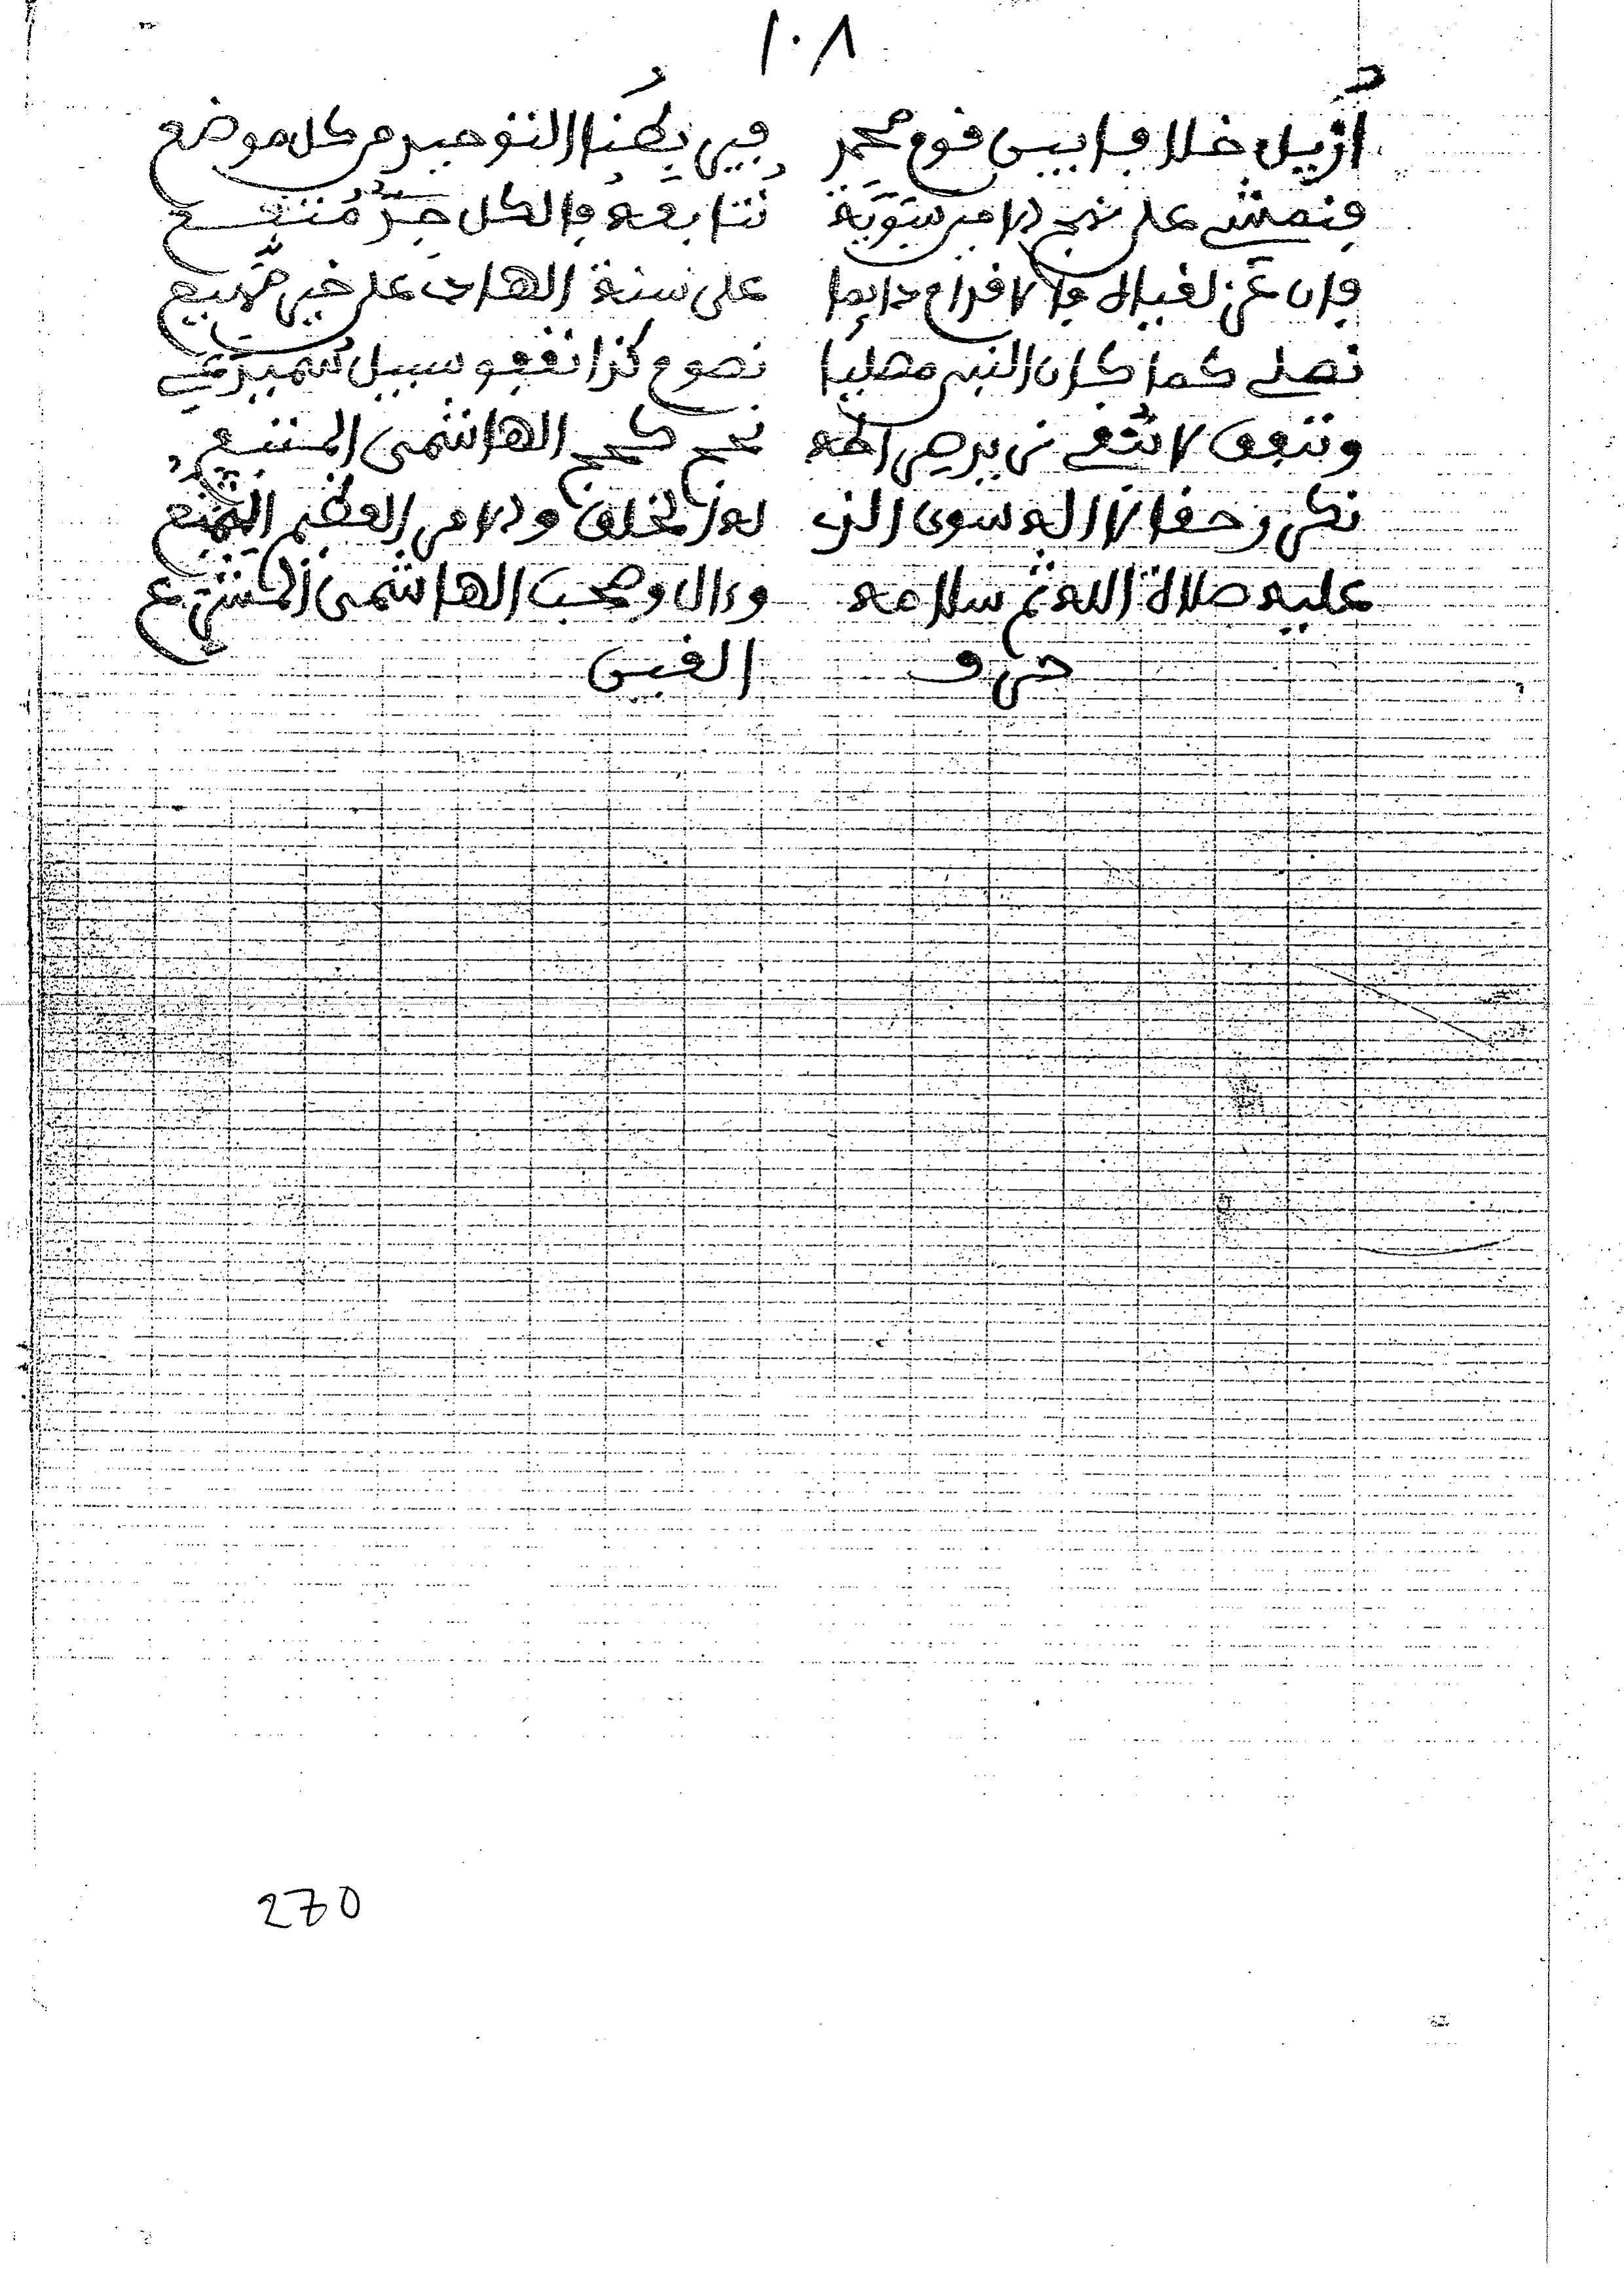 ١٠٨
أزيل خلافا بين قوم محمد فيي يطهنا التوحيد من كل موضع
فنمشي على نهج الامير سوية نتابعه والكل جد متتبع
وان عن لقياه والاقدام دايما على سنة الهادي على خير مهيع
نصلي كما كان النبي مصليا نصوم كذا نقفو سبيل سميدع
وننفق لا نثني نريد رضى نحج كحج الهاشمي المتتبع
نكرر حقا لا اله سوى الذي له الخلق والامر العظيم الممنع
عليه صلاة الله ثم سلامه وءال وصحب الهاشمي المشرع
حرف الغين
270